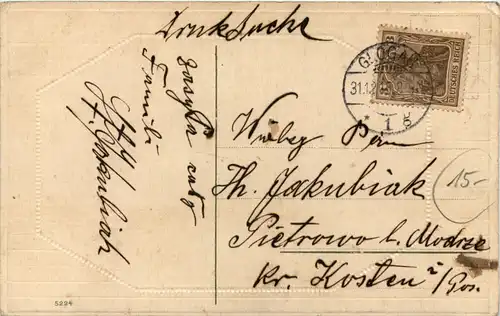 Drucksache
zasyła cała
Familia
Jakubiak
GLOGAU
31.12
* 1 g
3
DEUTSCHES REICH
Wielny Pan
Th. Jakubiak
Pietrowo b. Modrze
Kr. Kosten i/Pos.
15-
5224